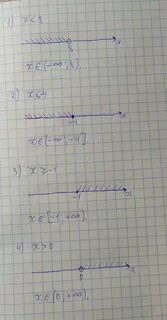 1) x<8
8 x
x∈(-∞; 8).
2) x≤-4
-4 x
x∈(-∞; -4]
3) x≥-1
-1 x
x∈[-1; +∞)
4) x>0
0 x
x∈(0; +∞).